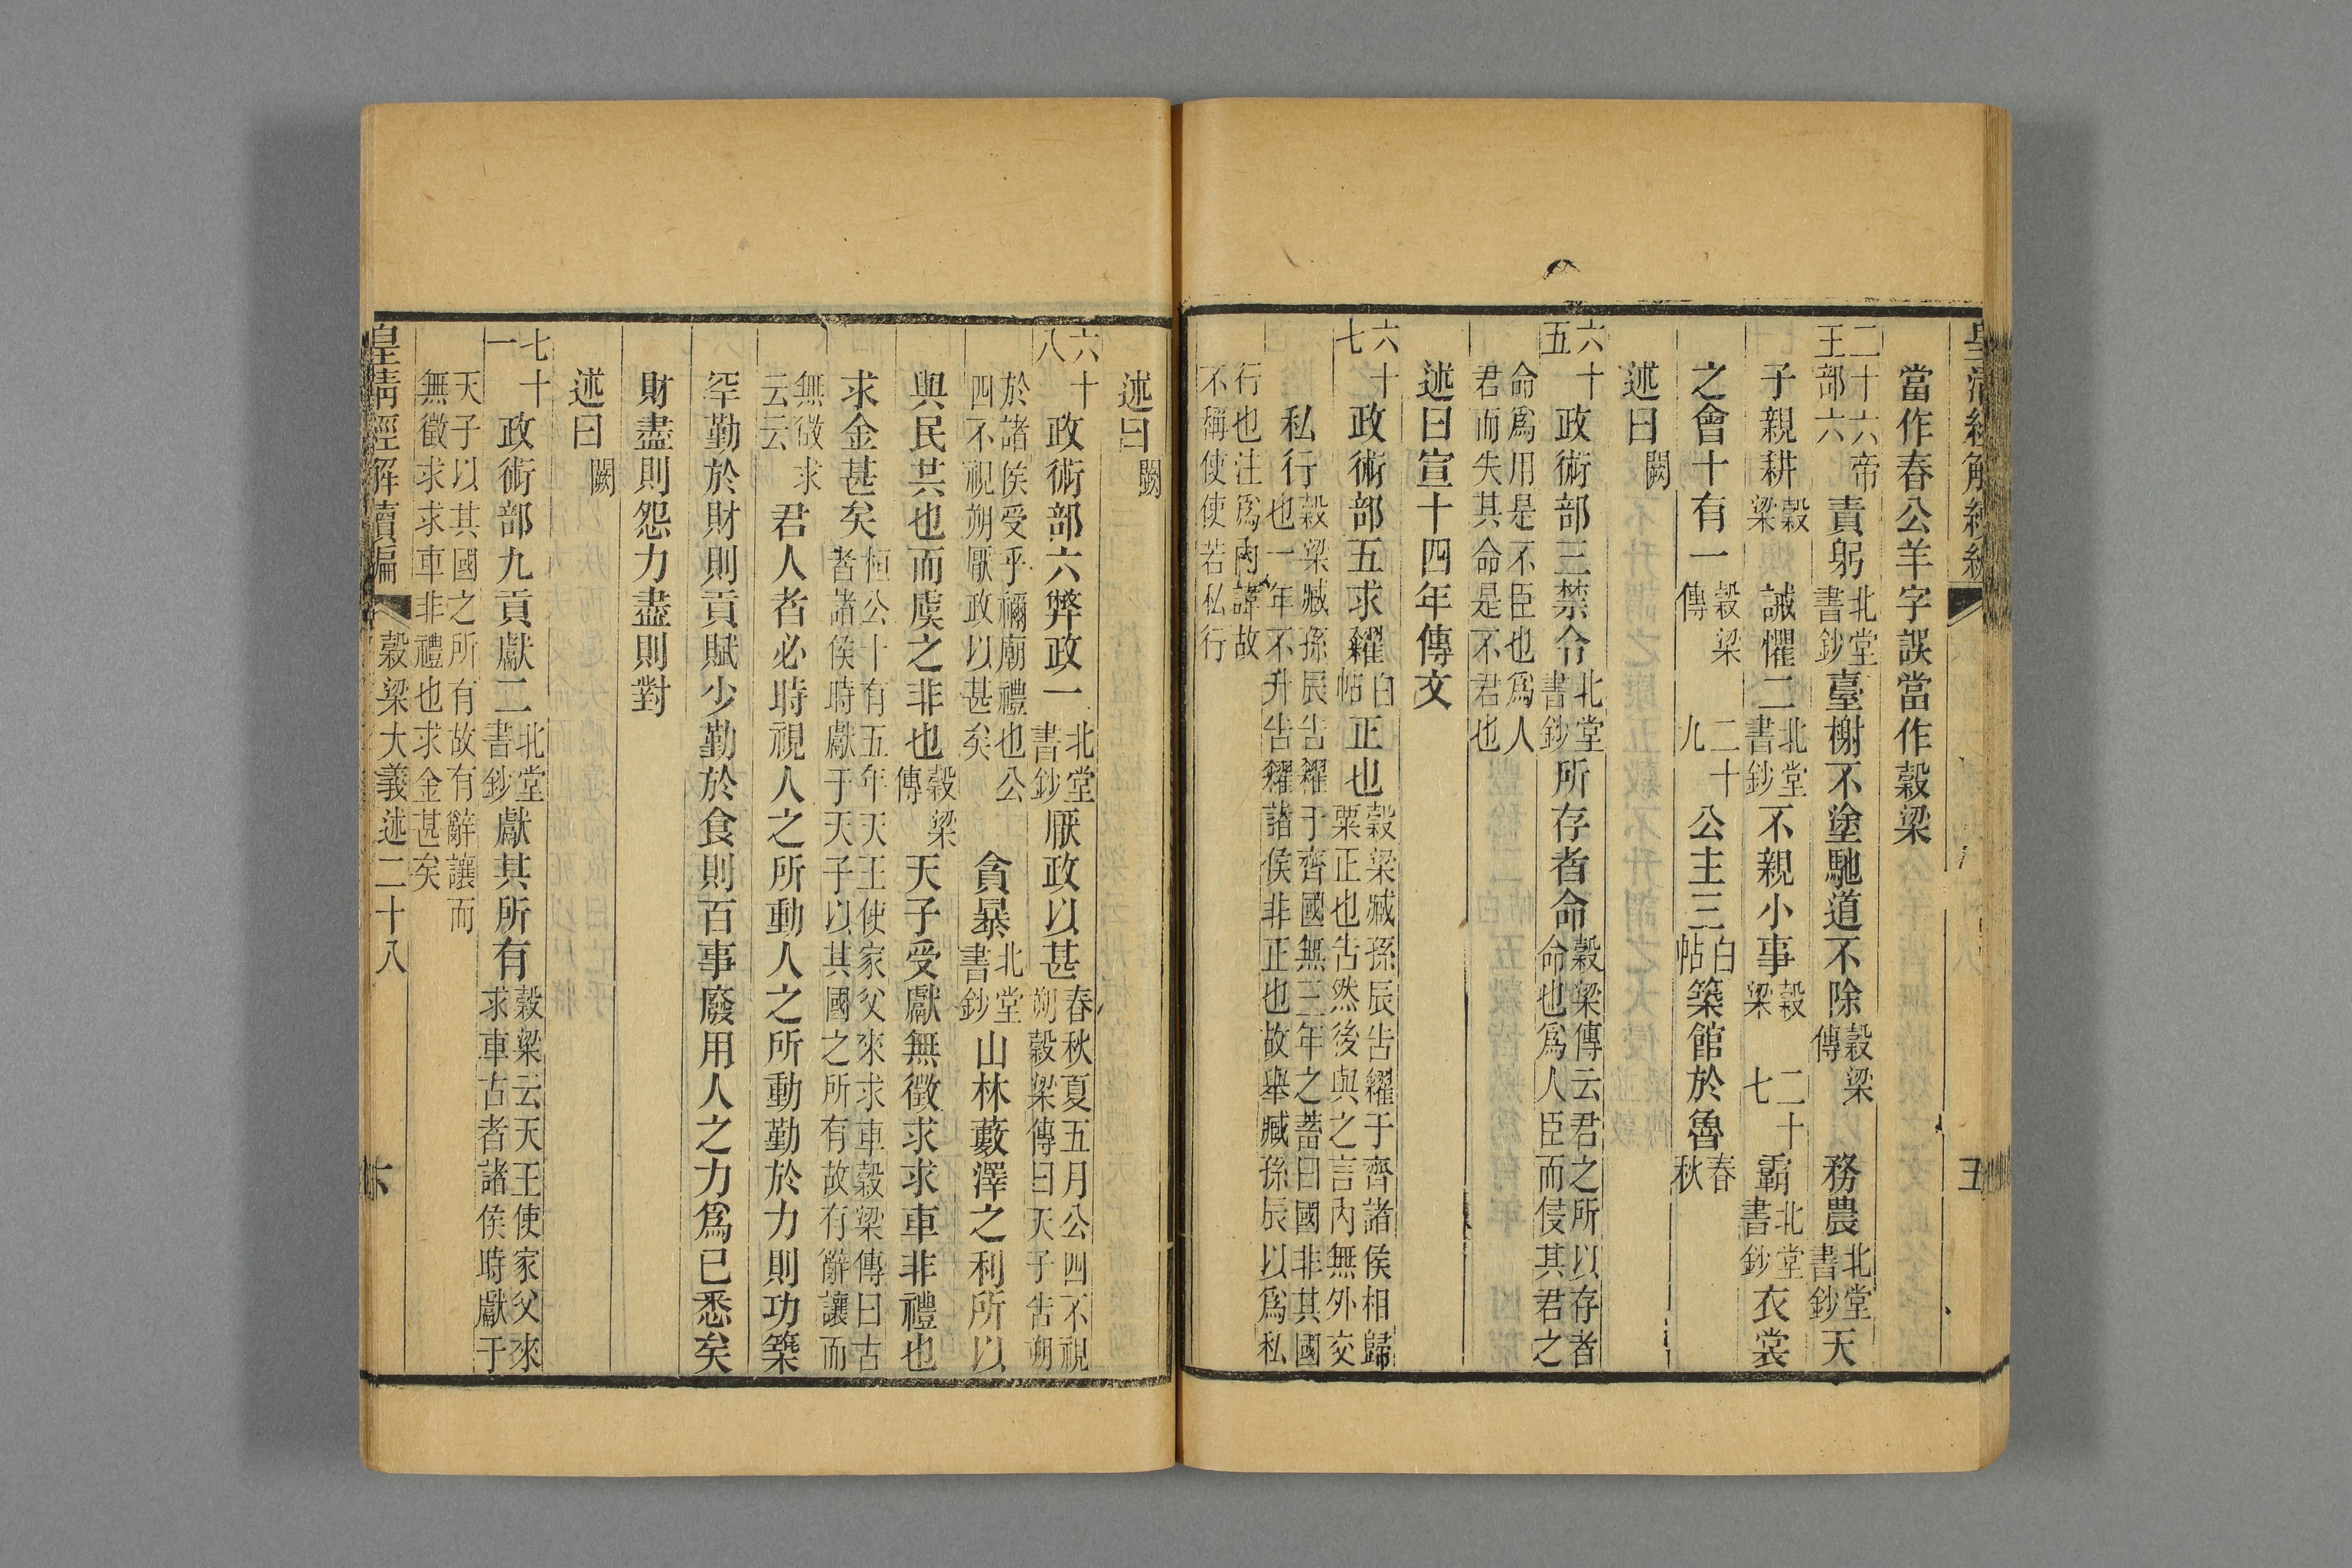 皇清經解續編 五
當作春公羊字誤當作穀梁
二十六帝王部六責躬北堂書鈔臺榭不塗馳道不除穀梁傳務農北堂書鈔天
子親耕穀梁誠懼二北堂書鈔不親小事穀梁二十七霸北堂書鈔衣裳
之會十有一穀梁傳二十九公主三白帖築館於魯春秋
述曰闕
六十五政術部三禁令北堂書鈔所存者命穀梁傳云君之所以存者命也為人臣而侵其君之
命為用是不臣也為人君而失其命是不君也
述曰宣十四年傳文
六十七政術部五求糴白帖正也穀梁臧孫辰告糴于齊諸侯相歸粟正也告然後與之言內無外交
私行穀梁臧孫辰告糴于齊國無三年之蓄曰國非其國也一年不升告糴諸侯非正也故舉臧孫辰以為私
行也注為內諱故不稱使使若私行
述曰闕
六十八政術部六弊政一北堂書鈔厭政以甚春秋夏五月公四不視朔穀梁傳曰天子告朔
於諸侯受乎禰廟禮也公四不視朔厭政以甚矣貪暴北堂書鈔山林藪澤之利所以
與民共也而虞之非也穀梁傳天子受獻無徵求求車非禮也
求金甚矣桓公十有五年天王使家父來求車穀梁傳曰古者諸侯時獻于天子以其國之所有故有辭讓而
無徵求云云君人者必時視人之所動人之所動勤於力則功築
罕勤於財則貢賦少勤於食則百事廢用人之力為已悉矣
財盡則怨力盡則懟
述曰闕
七十一政術部九貢獻二北堂書鈔獻其所有穀梁云天王使家父來求車古者諸侯時獻于
天子以其國之所有故有辭讓而無徵求求車非禮也求金甚矣
皇清經解續編 穀梁大義述二十八